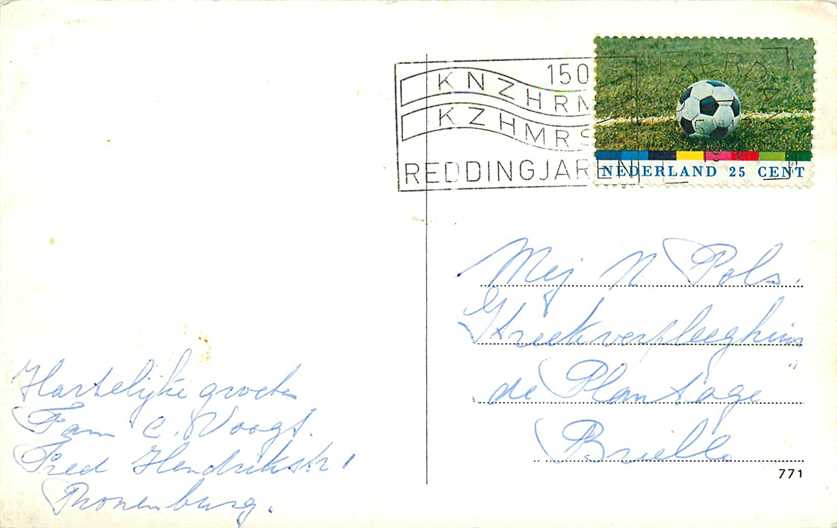 150
KNZHRM
KZHMRS
REDDINGJAREN
NEDERLAND 25 CENT
Mej N Pols.
de Plantage
Brielle
771
Hartelijke groeten
Fam C. Voogt.
Fred Hendrikstr 1